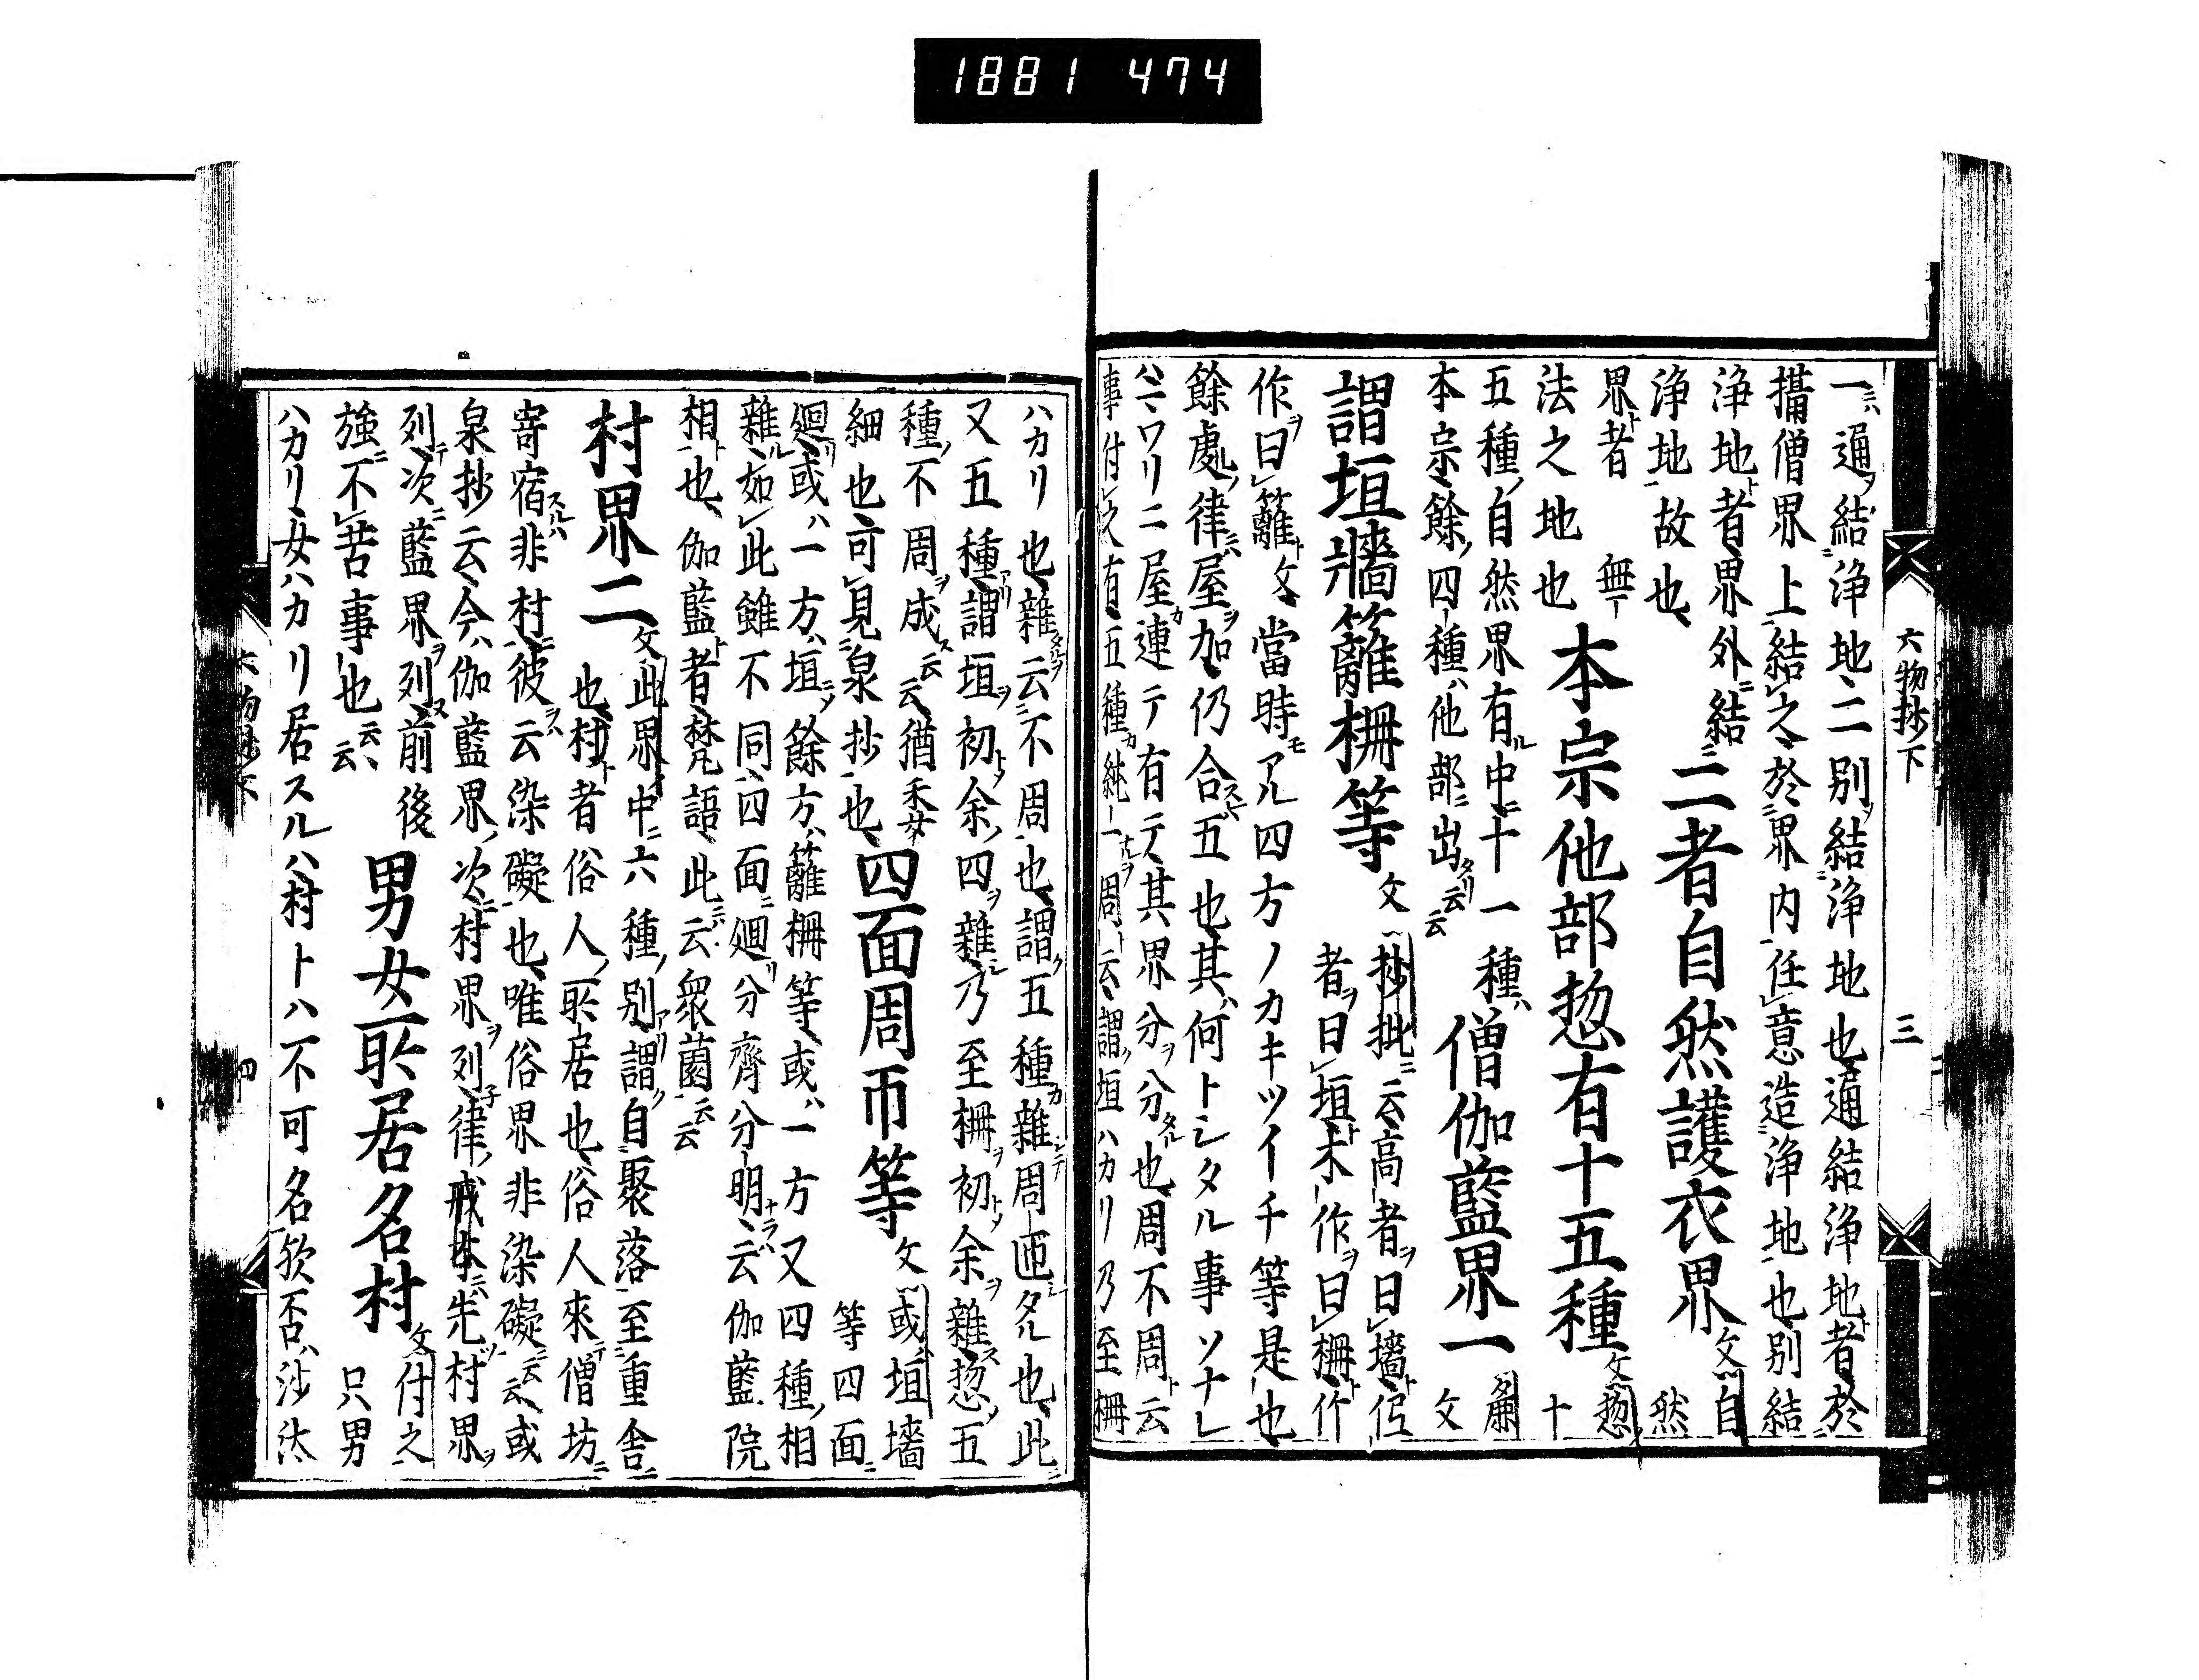 1881 474
六物抄下 三
一ニハ通ヲ結淨地、二別ヲ結淨地也、通結淨地者ト於
攝僧界上結之、於界内任意造淨地也、別結
淨地ト者、界外ニ結
淨地故也、
二者自然護衣界文
自然
界ト者無
法之地也
本宗他部惣有十五種文
惣十
五種ノ自然界有ル中ニ十一種ハ
本宗、餘ノ四種ハ他部ニ出タリ云云
僧伽藍界一
文
謂垣牆籬柵等文
抄批ニ云、高者ヲ曰墻ト、
者ヲ曰垣ト、木作ヲ曰柵ト、竹
作ヲ曰籬ト文、當時モアル四方ノカキツイチ等是也、
餘處ノ律ニハ屋ヲ加、仍合スレハ五也、其ハ何トシタル事ソナレ
ハ、マワリニ屋カ連テ有テ、其界分ヲ分タル也、周不周ト云
事付之有、五種カ純一ナルヲ周ト云、謂ク垣ハカリ乃至柵
ハカリ也、雜タルヲ云不周也、謂ク五種カ雜シテ周迊シタル也、此ニ
又五種アリ、謂垣ヲ初トメ余ノ四ヲ雜シ、乃至柵ヲ初トメ余ヲ雜ス、惣ノ五
種ノ不周ヲ成ス云云、猶禾女
細也、可見泉抄也、
四面周帀等文
或ハ垣墻
等四面ニ
廻リ、或ハ一方ハ垣ニメ、餘方ハ籬柵等、或ハ一方又四種ノ相
雜ル、如此雖不同、四面ニ廻リ分齊分明ナラハ、云伽藍院
相ト也、伽藍ト者、梵語、此ニハ云衆薗云云
村界二文
此界中ニ六種ノ別アリ、謂ク自聚落至重舎ニ
也、村ト者俗人ノ所居也、俗人來テ僧坊ニ
寄宿スルハ非村ニ、彼ヲハ云染礙也、唯俗界非染礙ニ云云、或
泉抄云、今ハ伽藍界ノ次ニ村界ヲ列子、律ノ戒本ニハ先ツ村界ヲ
列テ、次ニ藍界ヲ列ヌ、前後
強ニ不苦事也云云、
男女所居名村文
付之、
只男
ハカリ、女ハカリ居スルハ村トハ不可名欤否、沙汰
六物抄下 四